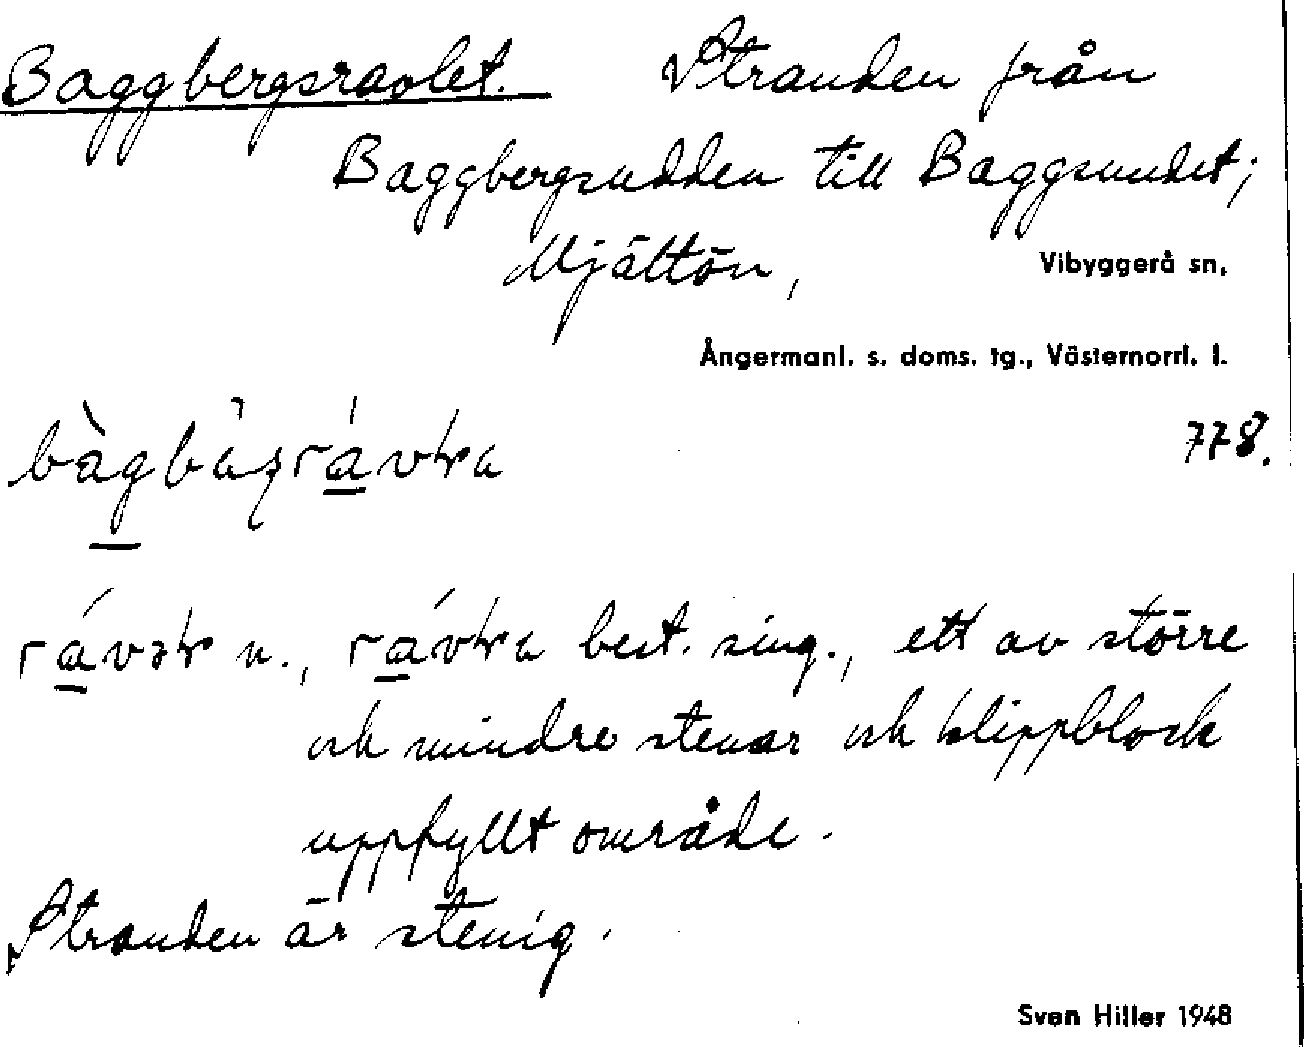 Baggbergsravlet. Stranden från
Baggbergsudden till Baggsundet;
Mjältön, Vibyggerå sn,
Ångermanl. s. doms. tg., Västernorrl. l.
778.
n., best. sing., ett av större
och mindre stenar och klippblock
uppfyllt område.
Stranden är stenig.
Sven Hiller 1948